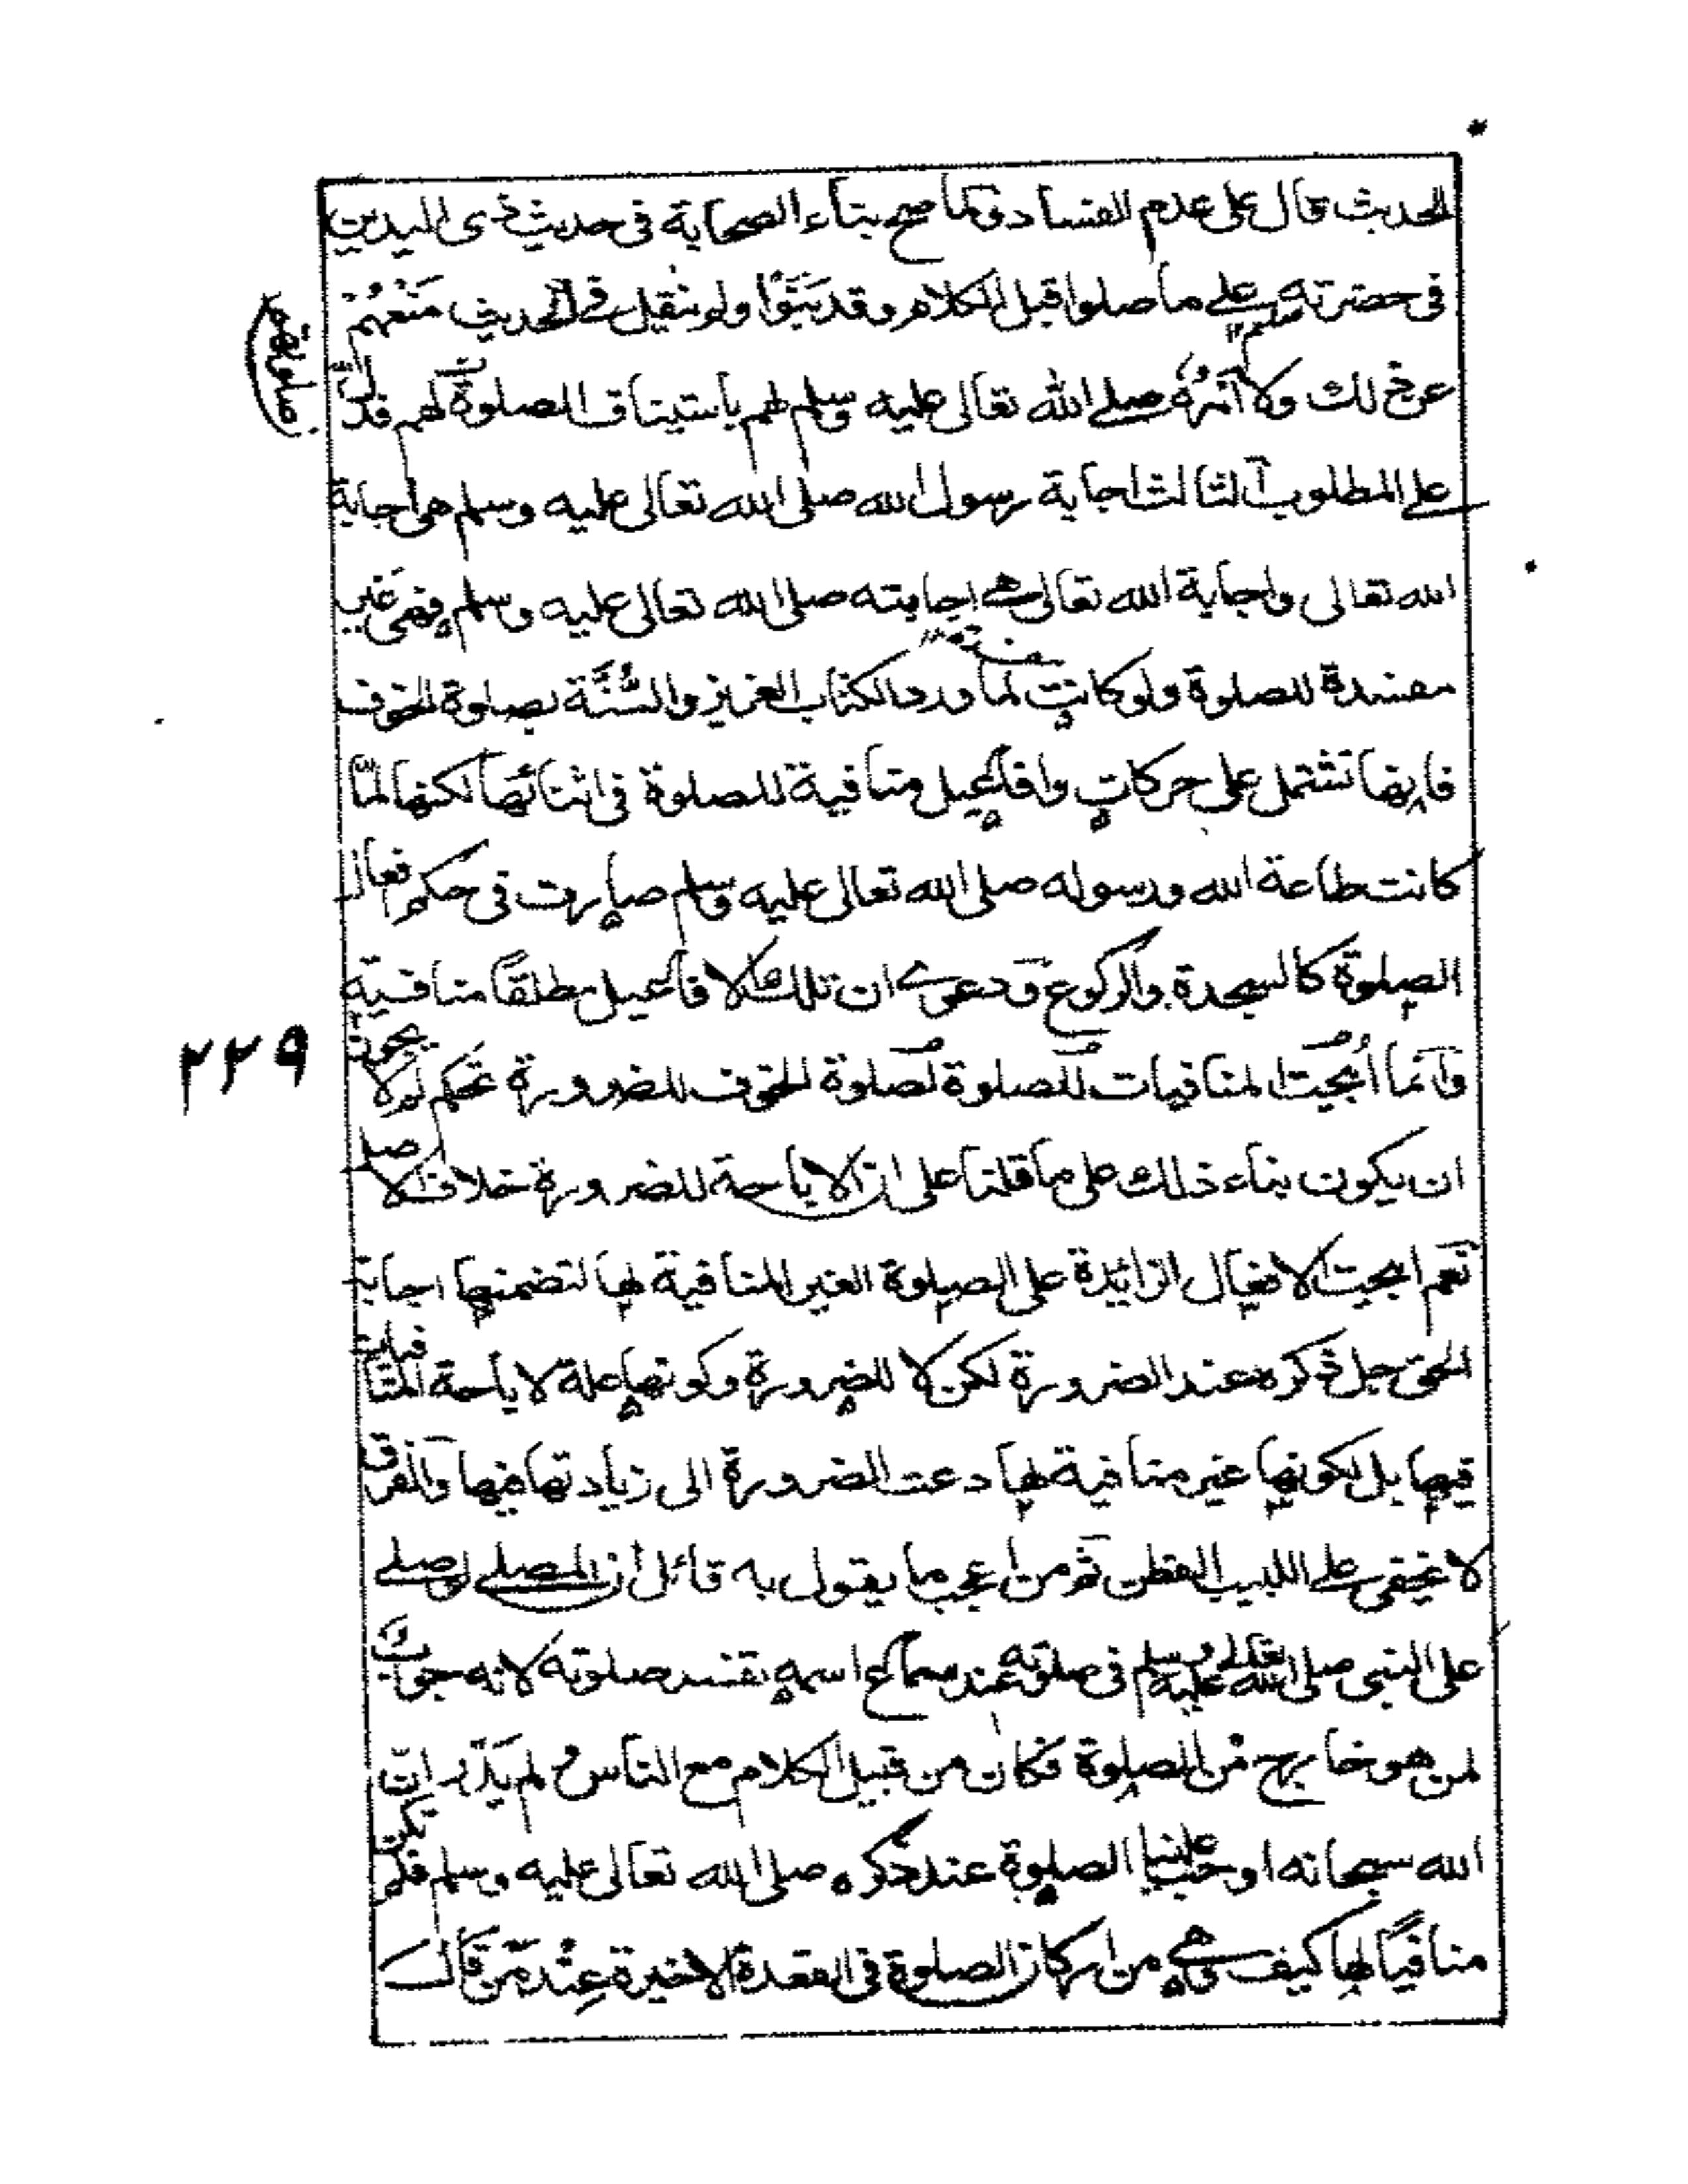 الحديث قال على عدم الفساد فى كما صح بناء الصحابة فى حديث ذى اليدين
فى حضرته صلعم على ما صلوا قبل الكلام وقد بَنَوْا ولم ينقل فى الحديث مَنْعُهُمْ
عن ذلك ولا أَمْرُهُ صلى الله تعالى عليه وسلم لهم باستيناف الصلوة لهم فدلّ
على المطلوب الثالث اجابة رسول الله صلى الله تعالى عليه وسلم هى اجابة
الله تعالى واجابة الله تعالى هى اجابته صلى الله تعالى عليه وسلم فهى غير
مفسدة للصلوة ولو كانت لما ورد الكتاب العزيز والسُّنَّة بصلوة الخوف
فانها تشتمل على حركاتٍ وافاعيل منافية للصلوة فى اثنائها لكنها لمّا
كانت طاعة الله ورسوله صلى الله تعالى عليه وسلم صارت فى حكم افعال
الصلوة كالسجدة والركوع ودعوى ان تلك الافاعيل مطلقًا منافية
وانما اُبيحت المنافيات للصلوة لصلوة الخوف للضرورة تحكم لم لا يجوز
ان يكون بناء ذلك على ما قلنا على ان الاباحة للضرورة خلاف الاصل
نعم ابيحت الافعال الزائدة على الصلوة الغير المنافية لها لتضمنها اجابة
الحق جل ذكره عند الضرورة لكن لا للضرورة وكونها علة لاباحة المنافيات
فيها بل لكونها غير منافية لها دعت الضرورة الى زيادتها فيها والفرق
لا يخفى على اللبيب الفطن ثم من اعجب ما يقول به قائل ان المصلى لو صلى
على النبى صلى الله تعالى عليه وسلم فى صلوته عند سماع اسمه تفسد صلوته لانه جواب
لمن هو خارج من الصلوة فكان من قبيل الكلام مع الناس ولم يَدْرِ انّ
الله سبحانه اوجب علينا الصلوة عند ذكره صلى الله تعالى عليه وسلم فلم تكن
منافيًا لها كيف وهى من اركان الصلوة فى القعدة الاخيرة عِنْدَ مَن قال
٢٢٩